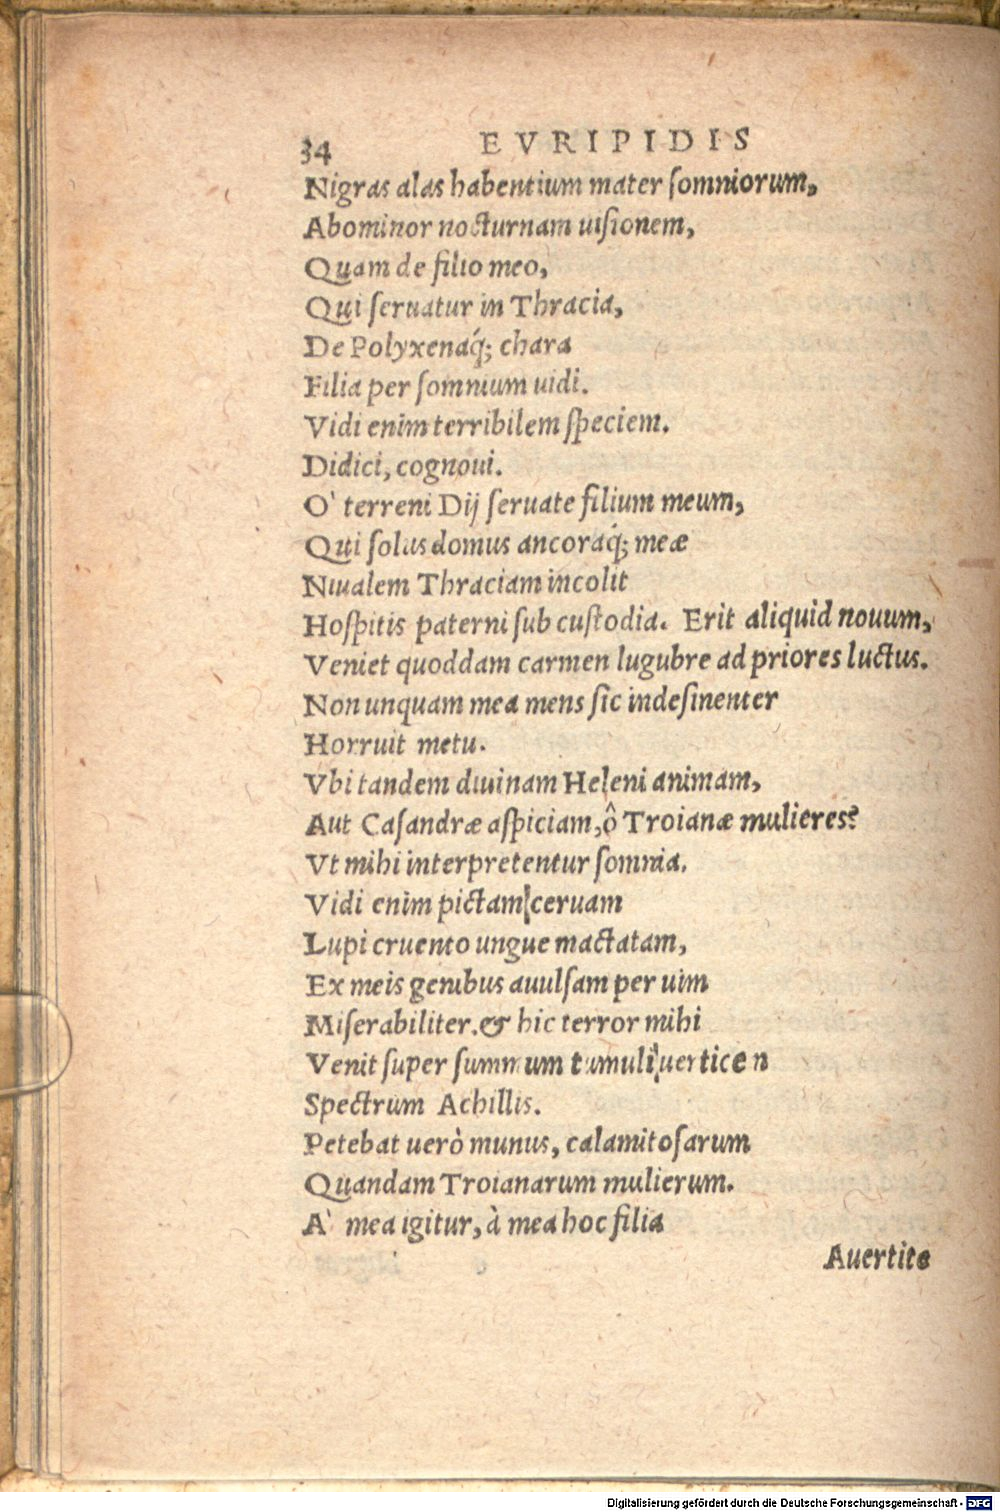 34 EVRIPIDIS
Nigras alas habentium mater ſomniorum,
Abominor nocturnam uiſionem,
Quam de filio meo,
Qui ſeruatur in Thracia,
De Polyxenaq́; chara
Filia per ſomnium uidi.
Vidi enim terribilem ſpeciem.
Didici, cognoui.
O' terreni Dij ſeruate filium meum,
Qui ſolus domus ancoraq́; meæ
Niualem Thraciam incolit
Hoſpitis paterni ſub cuſtodia. Erit aliquid nouum,
Veniet quoddam carmen lugubre ad priores luctus.
Non unquam mea mens ſic indeſinenter
Horruit metu.
Vbi tandem diuinam Heleni animam,
Aut Caſandræ aſpiciam, ô Troianæ mulieres?
Vt mihi interpretentur ſomnia.
Vidi enim pictam ceruam
Lupi cruento ungue mactatam,
Ex meis genibus auulſam per uim
Miſerabiliter. & hic terror mihi
Venit ſuper ſummum tumuli uerticen
Spectrum Achillis.
Petebat uerò munus, calamitoſarum
Quandam Troianarum mulierum.
A' mea igitur, à mea hoc filia
Auertite
Digitalisierung gefördert durch die Deutsche Forschungsgemeinschaft - DFG